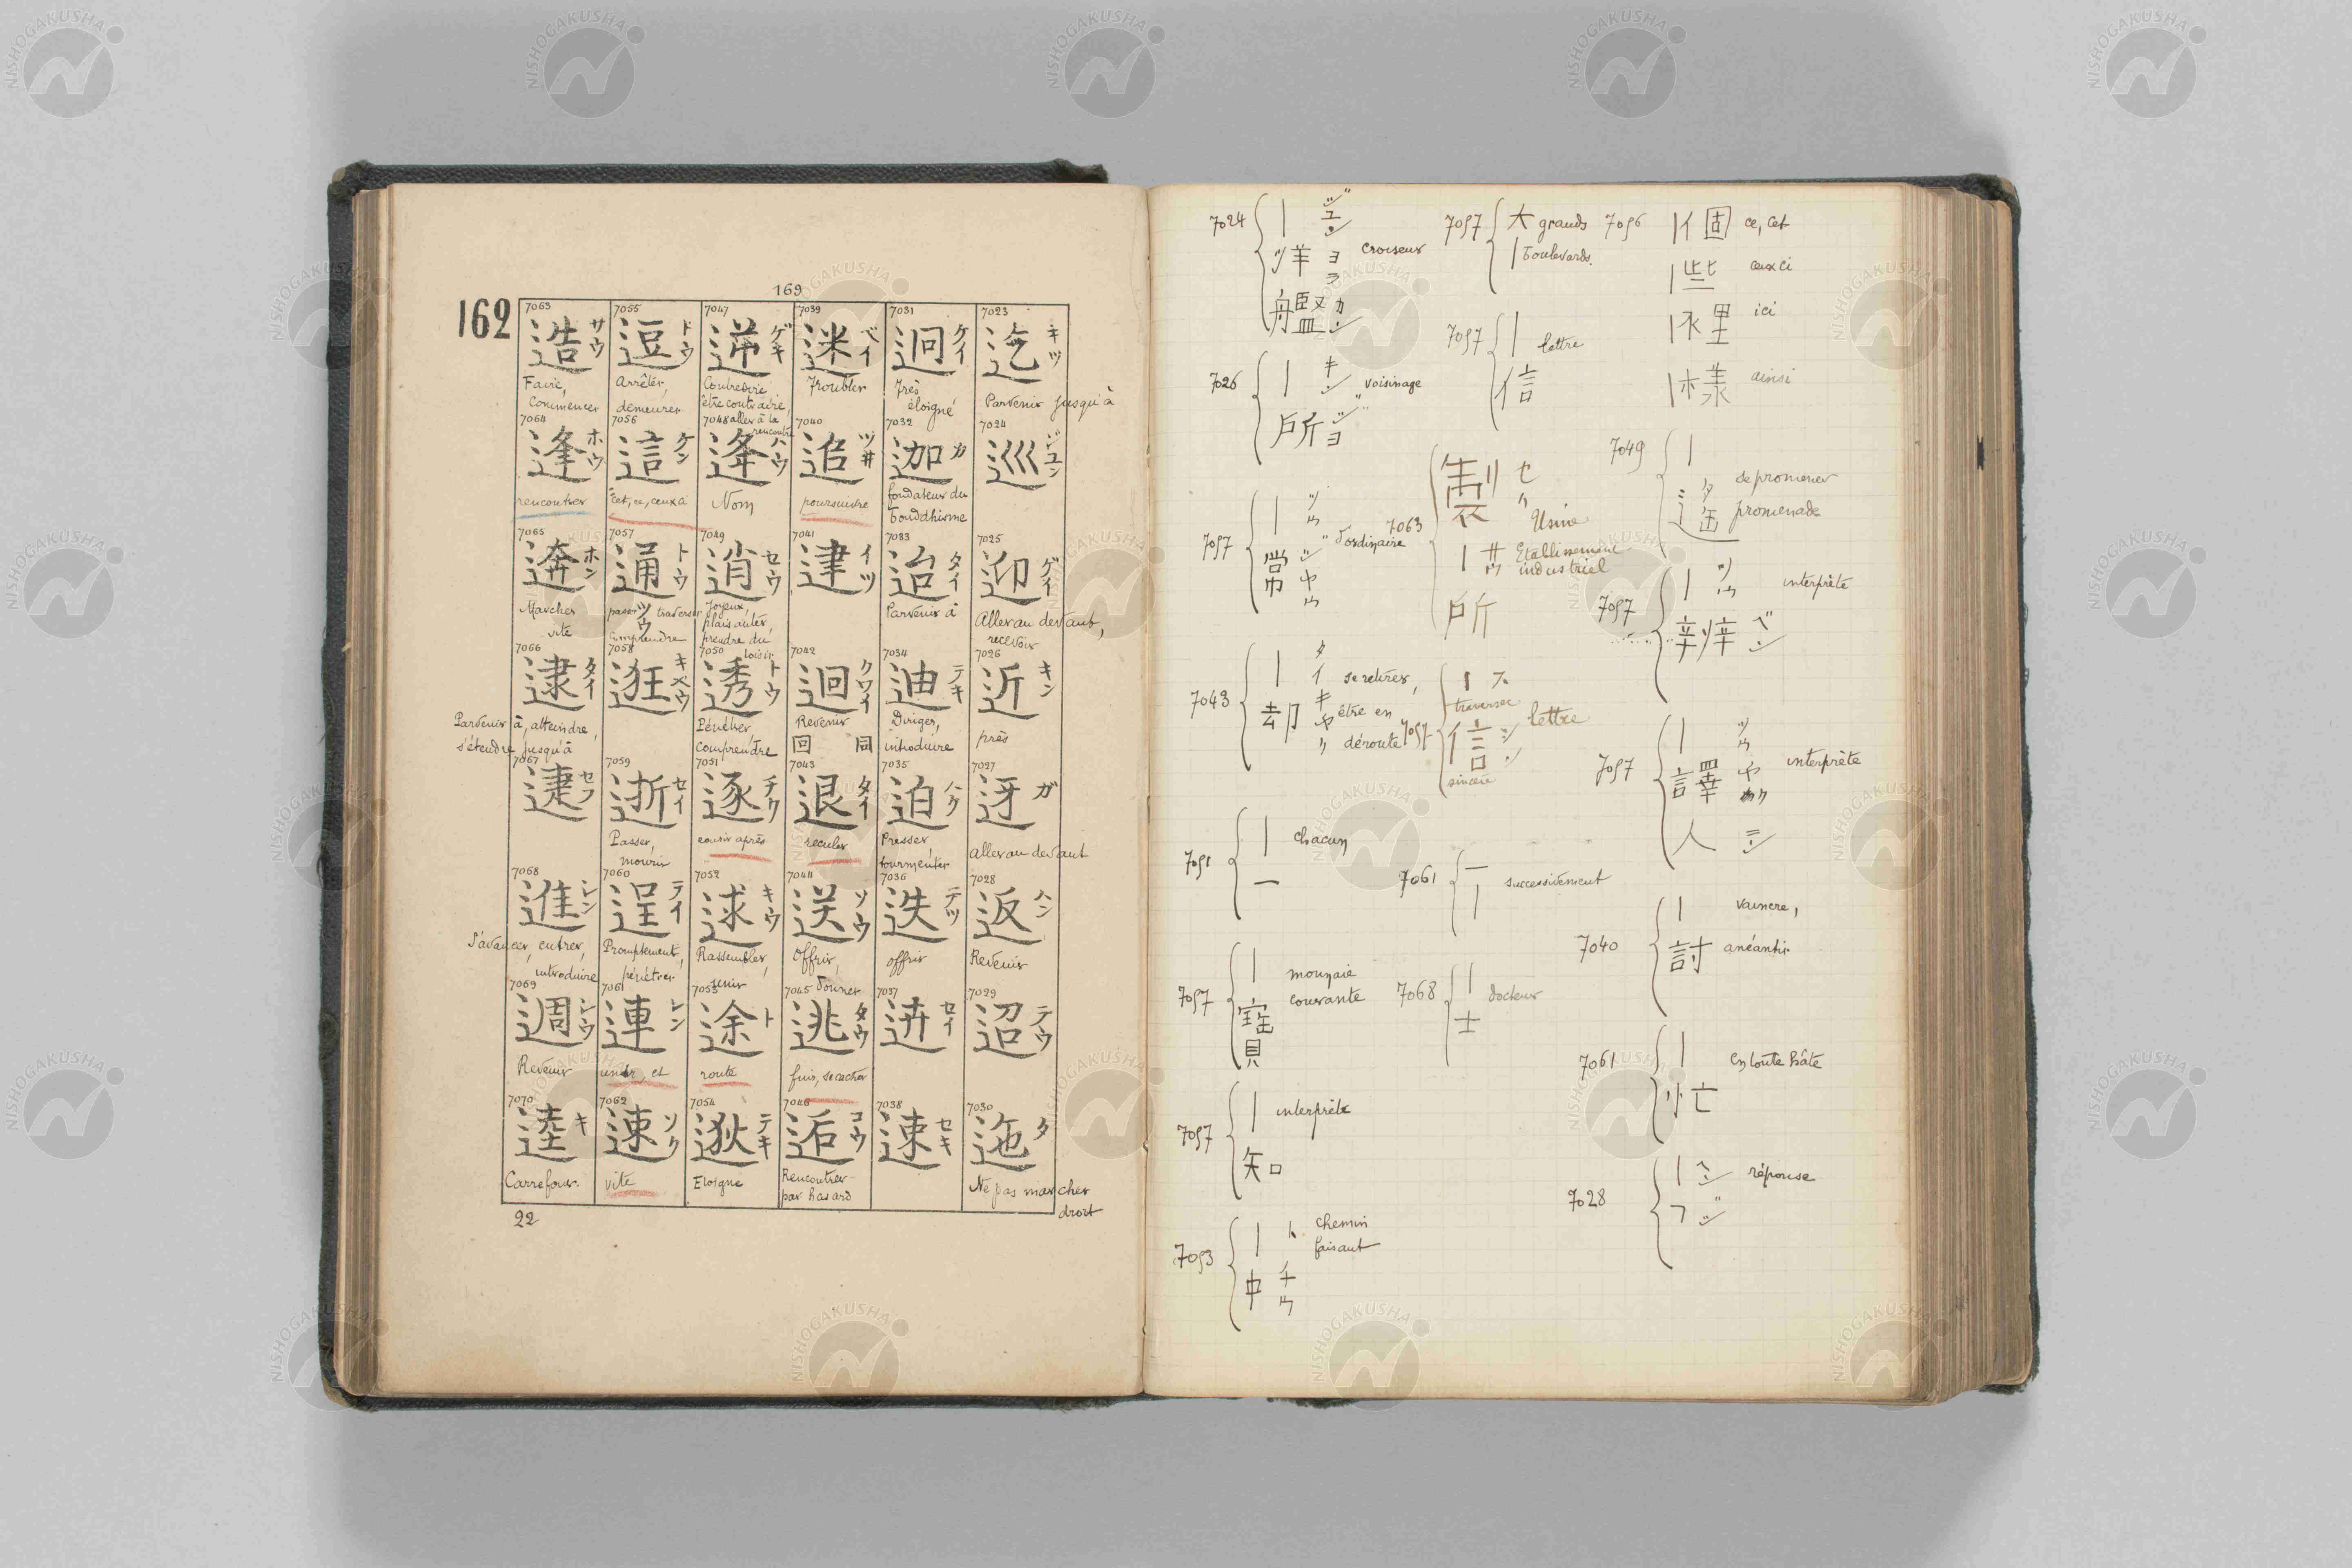 169
162
7023
迄 キツ
Parvenir jusqu'à
7024
巡 ジユン
7025
迎 ゲイ
Aller au devant,
recevoir
7026
近 キン
près
7027
迓 ガ
aller au devant
7028
返 ハン
Revenir
7029
迢 テウ
7030
迤 タ
Ne pas marcher
droit
7031
迥 ケイ
très
éloigné
7032
迦 カ
fondateur du
bouddhisme
7033
迨 タイ
Parvenir à
7034
迪 テキ
Diriger,
introduire
7035
迫 ハク
Presser,
tourmenter
7036
迭 テツ
offrir
7037
迸 セイ
7038
速 セキ
7039
迷 ベイ
Troubler
7040
追 ツヰ
poursuivre
7041
建 イツ
7042
迴 クワイ
Revenir
回 同
7043
退 タイ
reculer
7044
送 ソウ
Offrir,
donner
7045
逃 タウ
fuir, se cacher
7046
逅 コウ
Rencontrer
par hasard
7047
逆 ゲキ
Contredire
être contraire,
aller à la
rencontre
7048
逄 ハウ
Nom
7049
逍 セウ
Joyeux,
plaisanter,
prendre du
loisir
7050
透 トウ
Pénétrer,
comprendre
7051
逐 チク
courir après
7052
逑 キウ
Rassembler,
unir
7053
途 ト
route
7054
逖 テキ
Eloigne
7055
逗 トウ
Arrêter,
demeurer
7056
這 ゲン
cet, ce, ceux ci
7057
通 トウ
passer ツウ traverser
comprendre
7058
逛 キヤウ
7059
逝 セイ
Passer,
mourir
7060
逞 テイ
Promptement,
pénétrer
7061
連 レン
unir, et
7062
速 ソク
vite
7063
造 サウ
Faire,
Commencer
7064
逢 ホウ
rencontrer
7065
逩 ホン
Marcher
vite
7066
逮 タイ
Parvenir à, atteindre,
s'étendre jusqu'à
7067
逮 セフ
7068
進 シン
S'avancer, entrer,
introduire
7069
週 シウ
Revenir
7070
逵 キ
Carrefour.
22
7024 | ジユン
洋 ヨラ croiseur
艦 カン
7026 | キン voisinage
所 ジヨ
7057 | ツウ
常 ジヤウ d'ordinaire
7043 | タイ se retirer,
却 キヤク être en
déroute
7051 | chacun
一
7057 | monnaie
寶 courante
貝
7057 | interprète
知
7053 | ト chemin
faisant
中 チウ
7057 大 grands
| boulevards.
7057 | lettre
信
7063 製 セイ
Usine
| サウ Etablissement
industriel
所
7057 | ス
traverser
信 シン lettre
sincère
7061 一 successivement
|
7068 | docteur
士
7056 | 個 ce, cet
| 些 ceux ci
| 裡 ici
| 樣 ainsi
7049 | se promener
遙 タ promenade
7057 | ツウ interprète
辨 ベン
7057 | ツウ
譯 ヤク interprète
人 ニン
7040 | vaincre,
討 anéantir
7061 | en toute hâte
忙
7028 | ヘン réponse
フジ